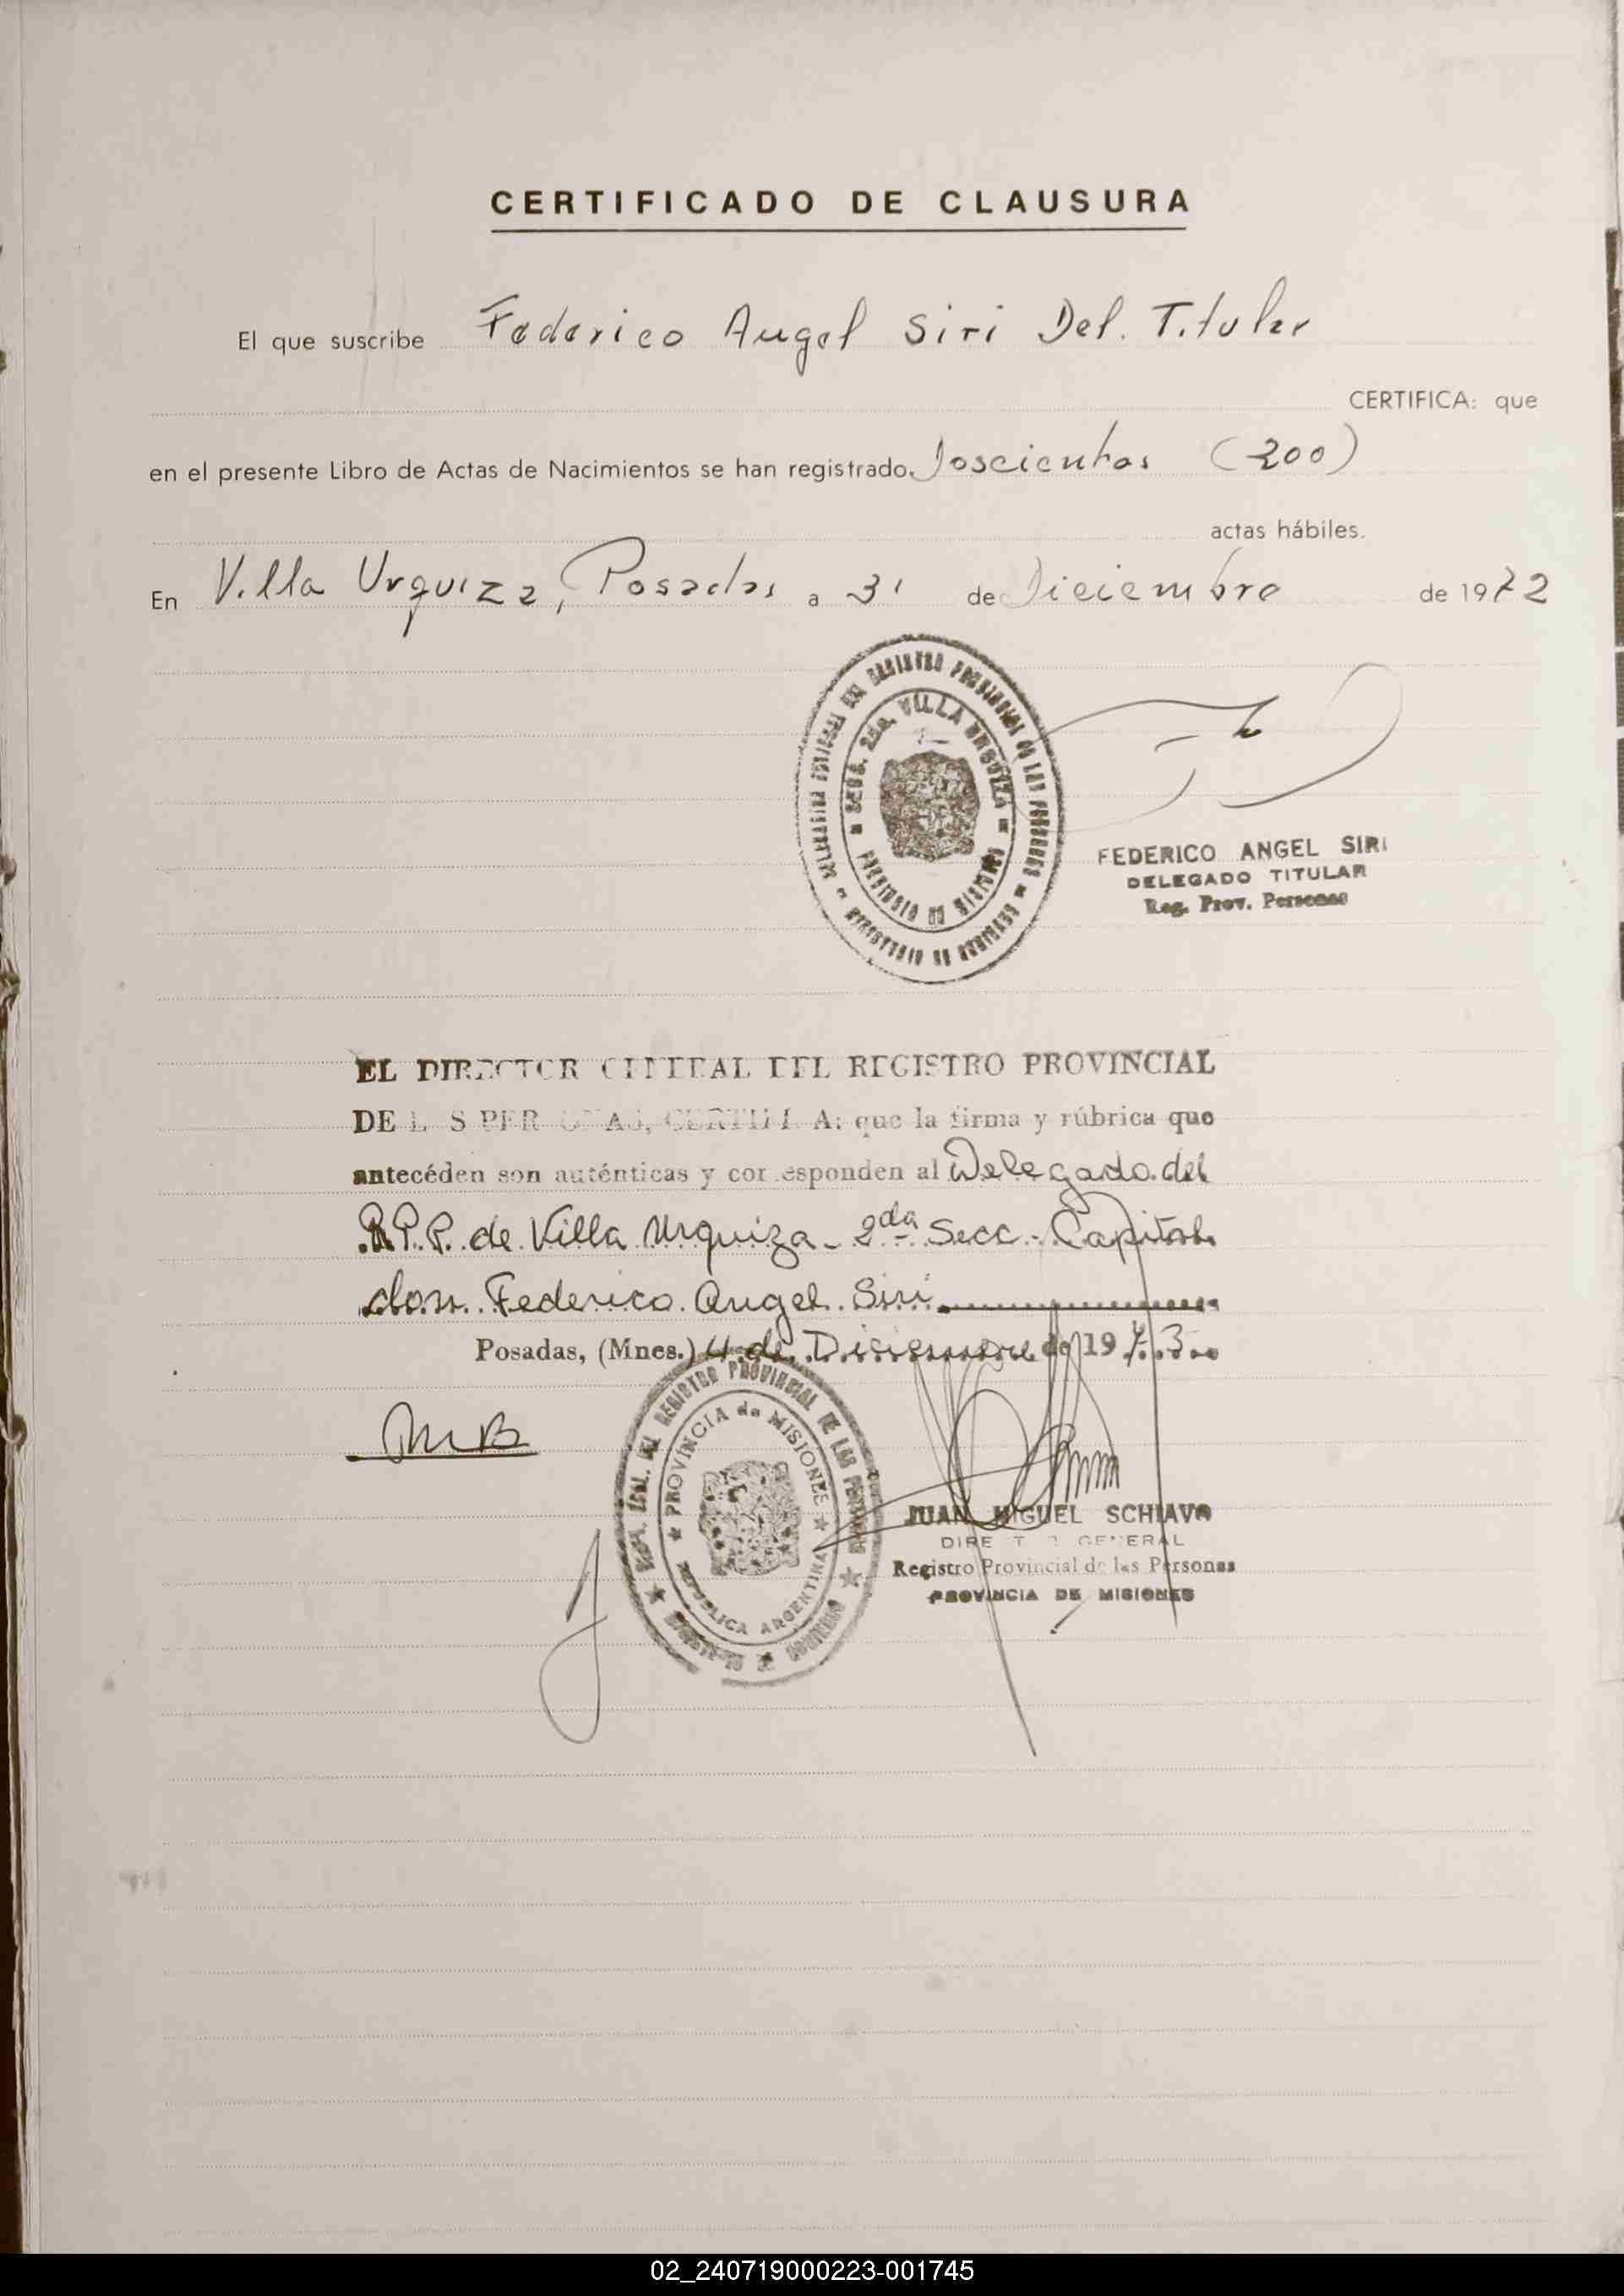 CERTIFICADO DE CLAUSURA
El que suscribe Federico Angel Siri Del. Titular
CERTIFICA: que
en el presente Libro de Actas de Nacimientos se han registrado Doscientos (200)
actas hábiles.
En Villa Urquiza, Posadas a 31 de Diciembre de 1972
SECC. 2da. VILLA URQUIZA
PROVINCIA DE MISIONES
FEDERICO ANGEL SIRI
DELEGADO TITULAR
Reg. Prov. Personas
EL DIRECTOR GENERAL DEL REGISTRO PROVINCIAL
DE LAS PERSONAS, CERTIFICA: que la firma y rúbrica que
antecéden son auténticas y corresponden al Delegado del
R.P.P. de Villa Urquiza - 2da Secc. - Capital
don Federico Angel Siri
Posadas, (Mnes.) 4 de Diciembre de 1973
REGISTRO PROVINCIAL DE LAS PERSONAS
PROVINCIA de MISIONES
REPUBLICA ARGENTINA
JUAN MIGUEL SCHIAVO
DIRECTOR GENERAL
Registro Provincial de las Personas
PROVINCIA DE MISIONES
02_240719000223-001745